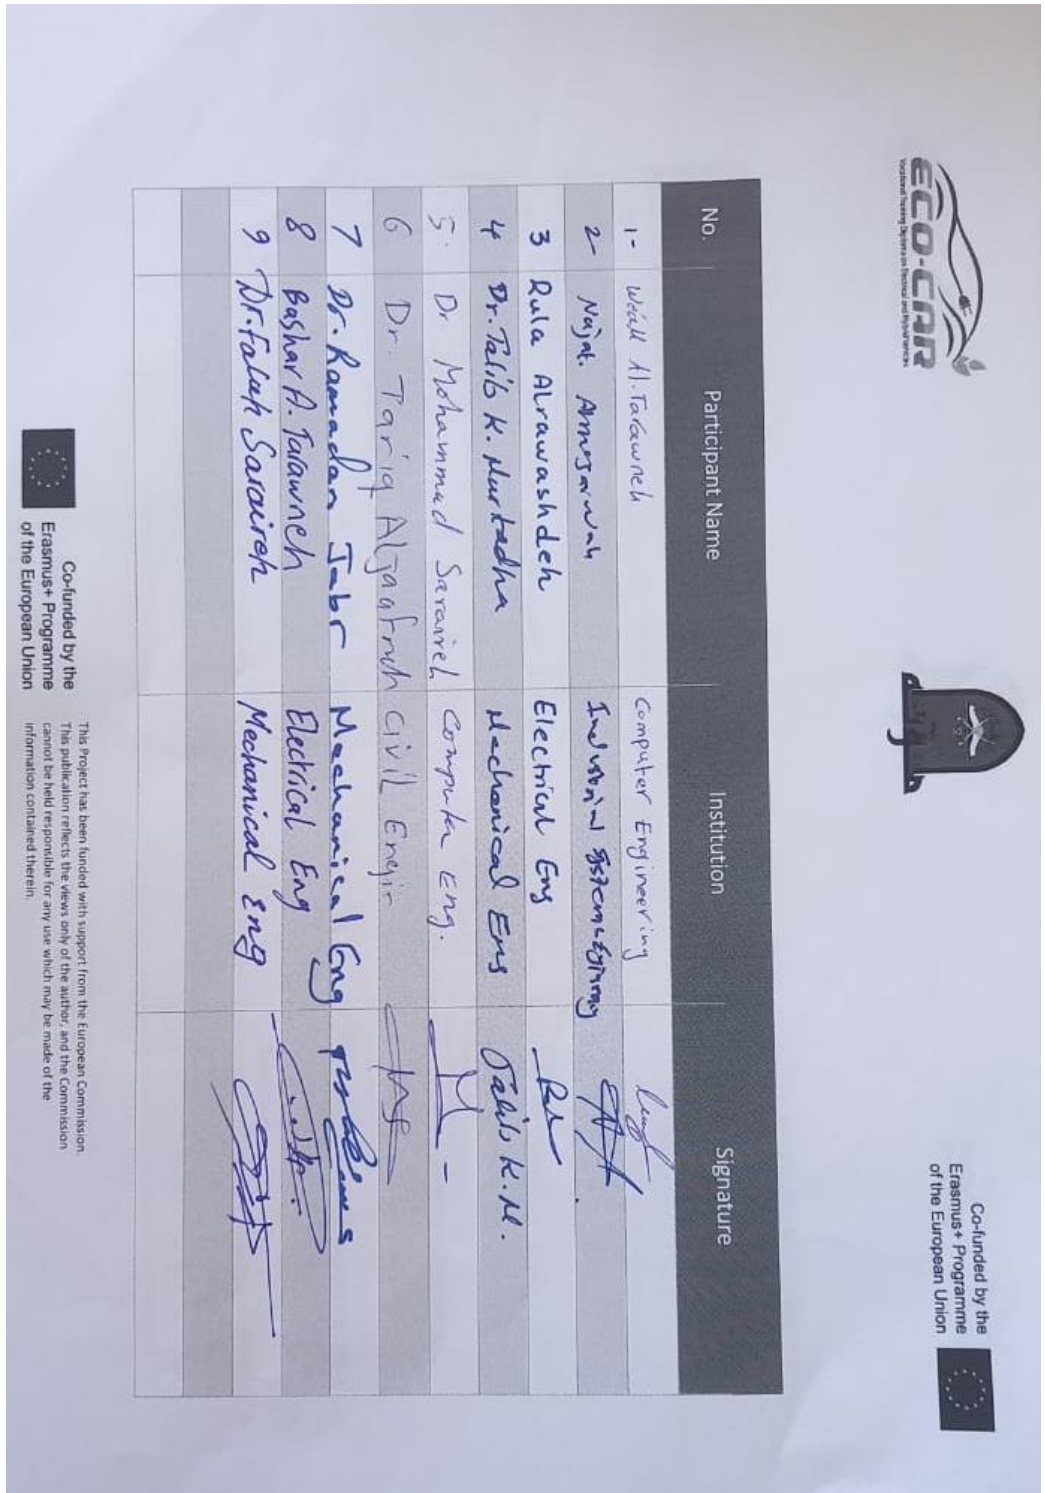 ECO-CAR
Vocational Training Diploma on Electrical and Hybrid Vehicles
Co-funded by the
Erasmus+ Programme
of the European Union
No. Participant Name Institution Signature
1- Al.Tarawneh Computer Engineering
2- Najat.
3 Rula Alrawashdeh Electrical Eng
4 Dr. Talib K. Murtadha Mechanical Eng Talib K.M.
5. Dr Mohammad Saraireh Computer Eng.
6 Dr. Tariq Civil Engin
7 Dr. Ramadan Jabr Mechanical Eng
8 Bashar A. Tarawneh Electrical Eng
9 Dr. Falah Saraireh Mechanical Eng
Co-funded by the
Erasmus+ Programme
of the European Union
This Project has been funded with support from the European Commission.
This publication reflects the views only of the author, and the Commission
cannot be held responsible for any use which may be made of the
information contained therein.